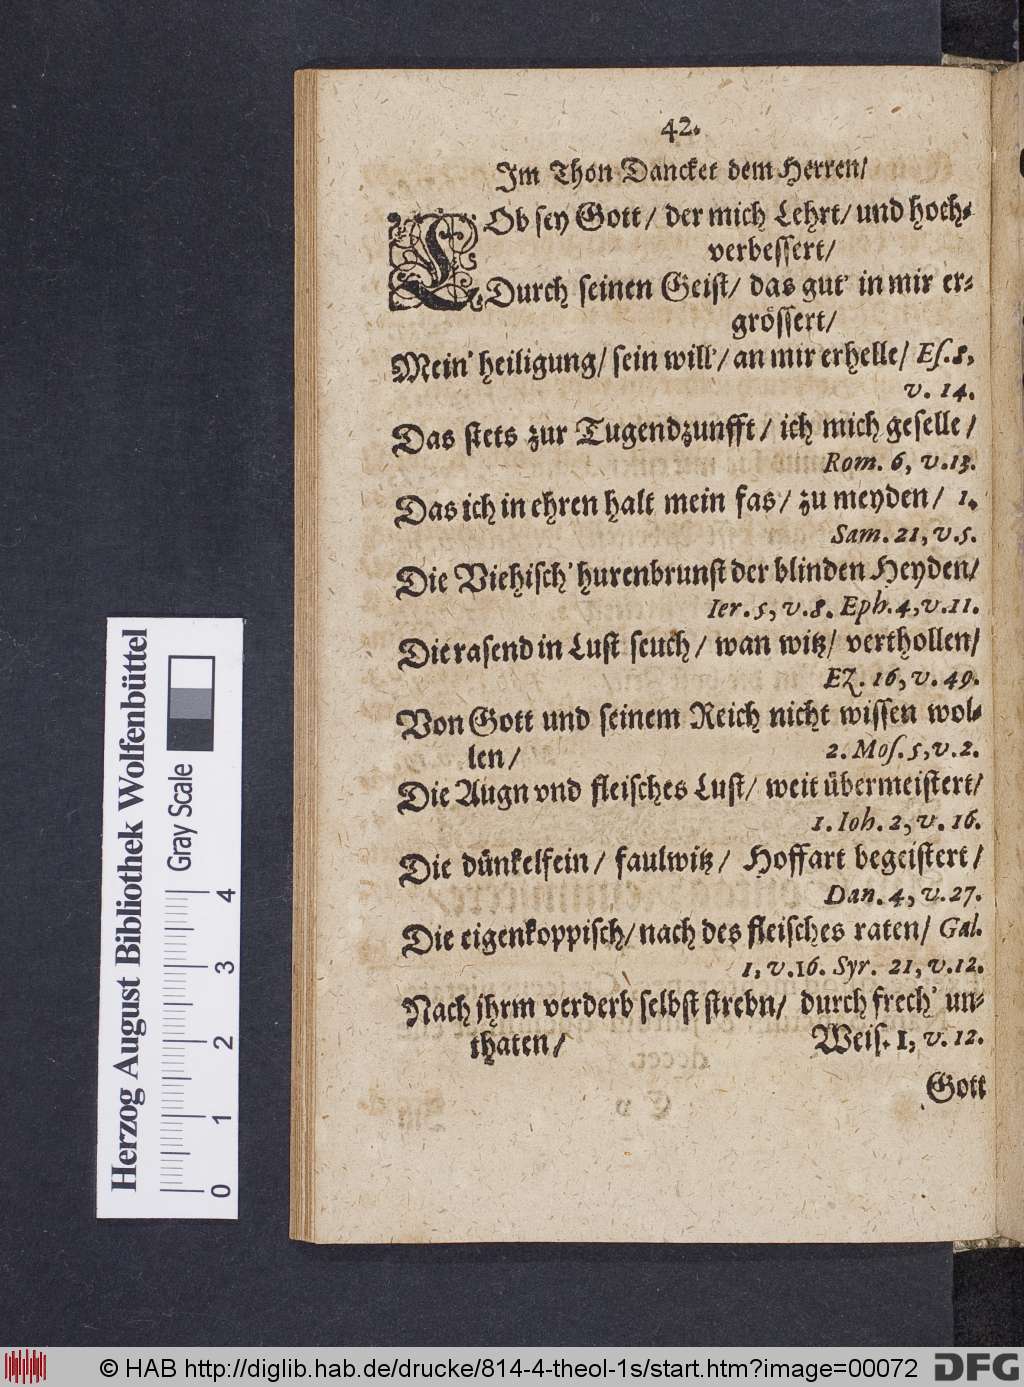 42.
Im Thon Dancket dem Herren/
LOb sey Gott/ der mich Lehrt/ und hoch-
verbessert/
Durch seinen Geist/ das gut' in mir er-
grössert/
Mein' heiligung/ sein will'/ an mir erhelle/ Es. 8,
v. 14.
Das stets zur Tugendzunfft/ ich mich geselle/
Rom. 6, v. 13.
Das ich in ehren halt mein fas/ zu meyden/ 1.
Sam. 21, v. 5.
Die Viehisch' hurenbrunst der blinden Heyden/
Ier. 5, v. 8. Eph. 4, v. 11.
Die rasend in Lust seuch/ wan witz/ verthollen/
EZ. 16, v. 49.
Von Gott und seinem Reich nicht wissen wol-
len/ 2. Mos. 5, v. 2.
Die Augn vnd fleisches Lust/ weit übermeistert/
1. Ioh. 2, v. 16.
Die dünkelfein/ faulwitz/ Hoffart begeistert/
Dan. 4, v. 27.
Die eigenkoppisch/ nach des fleisches raten/ Gal.
1, v. 16. Syr. 21, v. 12.
Nach jhrm verderb selbst strebn/ durch frech' un-
thaten/ Weis. 1, v. 12.
Gott
Herzog August Bibliothek Wolfenbüttel
Gray Scale
0 1 2 3 4
© HAB http://diglib.hab.de/drucke/814-4-theol-1s/start.htm?image=00072
DFG